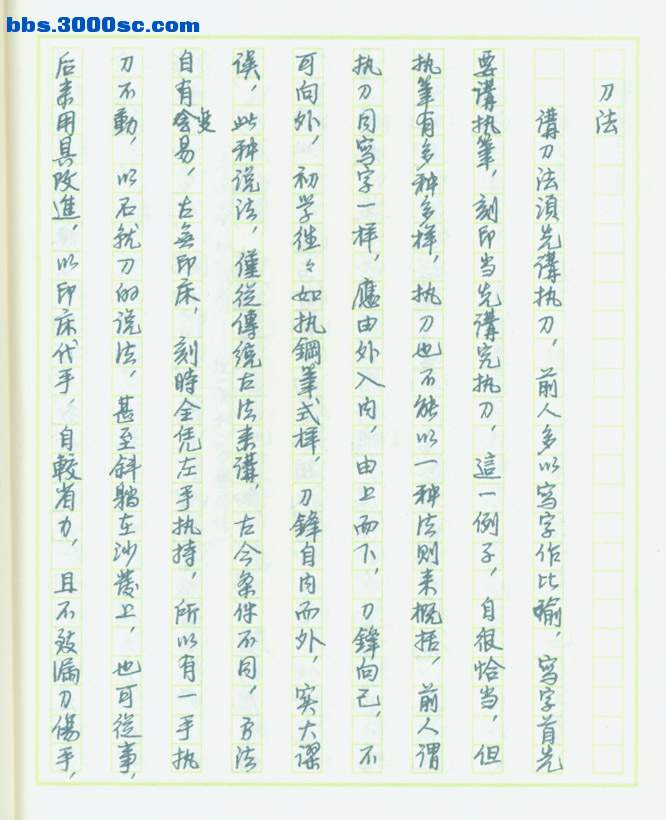 bbs.3000sc.com
刀法
講刀法須先講执刀，前人多以寫字作比喻，寫字首先
要講执筆，刻印当先講究执刀，這一例子，自很恰当，但
执筆有多种多样，执刀也不能以一种法則来概括，前人谓
执刀同寫字一样，應由外入内，由上而下，刀鋒向己，不
可向外，初学徃々如执鋼筆式样，刀鋒自内而外，实大谬
误，此种说法，僅從傳統古法来講，古今条件不同，方法
自有变易，古無印床，刻時全凭左手执持，所以有一手执
刀不動，以石就刀的说法，甚至斜躺在沙發上，也可從事，
后来用具改進，以印床代手，自較省力，且不致漏刀傷手，